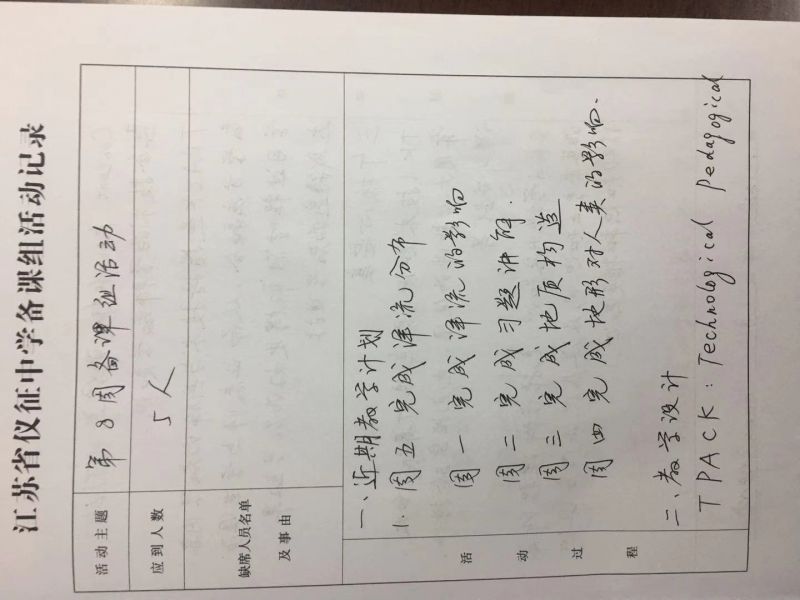 江苏省仪征中学备课组活动记录
活动主题 第8周备课组活动
应到人数 5人
缺席人员名单
及事由
活动过程
一、近期教学计划
1. 周五 完成洋流分布
周一 完成洋流的影响
周二 完成习题讲解.
周三 完成地质构造
周四 完成地形对人类的影响.
二、教学设计
TPACK: Technological Pedagogical